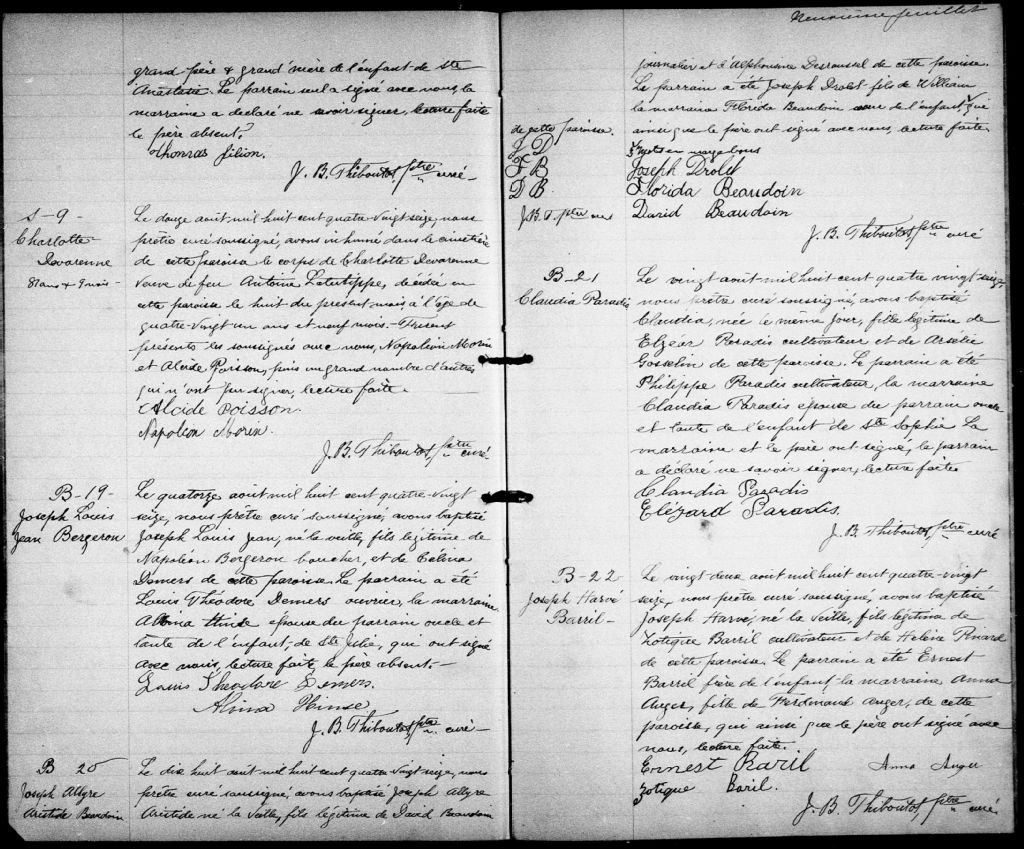 grand père & grand'mère de l'enfant de Ste
Anastasie. Le parrain seul a signé avec nous, la
marraine a declaré ne savoir signer, lecture faite
le père absent.
Thomas Filion.
J. B. Thiboutot, ptre curé
S-9-
Charlotte
Devarenne
81 ans & 9 mois-
Le douze août mil huit cent quatre-vingt seize, nous
prêtre curé soussigné, avons inhumé dans le cimetière
de cette paroisse le corps de Charlotte Devarenne
veuve de feu Antoine Letartippe, décédée en
cette paroisse le huit du present mois à l'âge de
quatre-vingt un ans et neuf mois-
présents les soussignés avec nous, Napoléon Morin
et Alcide Poisson, puis un grand nombre d'autres
qui n'ont pu signer, lecture faite-
Alcide Poisson.
Napoléon Morin.
J. B. Thiboutot, ptre curé
B-19-
Joseph Louis
Jean Bergeron
Le quatorze août mil huit cent quatre-vingt
seize, nous prêtre curé soussigné, avons baptisé
Joseph Louis Jean, né la veille, fils légitime de
Napoléon Bergeron boucher, et de Célina
Demers de cette paroisse. Le parrain a été
Louis Théodore Demers ouvrier, la marraine
Albina Hinse épouse du parrain oncle et
tante de l'enfant, de Ste Julie, qui ont signé
avec nous, lecture faite, le père absent.-
Louis Théodore Demers.
Alvina Hinse
J. B. Thiboutot, ptre curé-
B 20
Joseph Allyre
Aristide Beaudoin
Le dix huit août mil huit cent quatre vingt seize, nous
prêtre curé soussigné, avons baptisé Joseph Allyre
Aristide né la veille, fils légitime de David Beaudoin
Neuvième feuillet
journalier et d'Alphonsine Desrousel de cette paroisse.
Le parrain a été Joseph Drolet fils de William
la marraine Florida Beaudoin soeur de l'enfant qui
ainsi que le père ont signé avec nous, lecture faite.
de cette paroisse
J D
F B
D B.
J. B. T. ptre curé
mots en marge bons
Joseph Drolet
Florida Beaudoin
David Beaudoin
J. B. Thiboutot, ptre curé
B-21
Claudia Paradis
Le vingt août mil huit cent quatre vingt seize
nous prêtre curé soussigné, avons baptisé
Claudia, née le même jour, fille légitime de
Elzéar Paradis cultivateur et de Arselie
Gosselin de cette paroisse. Le parrain a été
Philippe Paradis cultivateur, la marraine
Claudia Paradis épouse du parrain oncle
et tante de l'enfant de Ste Sophie La
marraine et le père ont signé, le parrain
a déclaré ne savoir signer, lecture faite.
Claudia Paradis
Elézard Paradis.
J. B. Thiboutot, ptre curé
B-22
Joseph Harvé
Barril-
Le vingt deux août mil huit cent quatre-vingt
seize, nous prêtre curé soussigné, avons baptisé
Joseph Harvé, né la veille, fils légitime de
Zotique Barril cultivateur et de Helène Pinard
de cette paroisse. Le parrain a été Ernest
Barril frère de l'enfant, la marraine Anna
Auger, fille de Ferdinand Auger, de cette
paroisse, qui ainsi que le père ont signé avec
nous, lecture faite.
Ernest Baril Anna Auger
Zotique Baril.
J. B. Thiboutot, ptre curé.